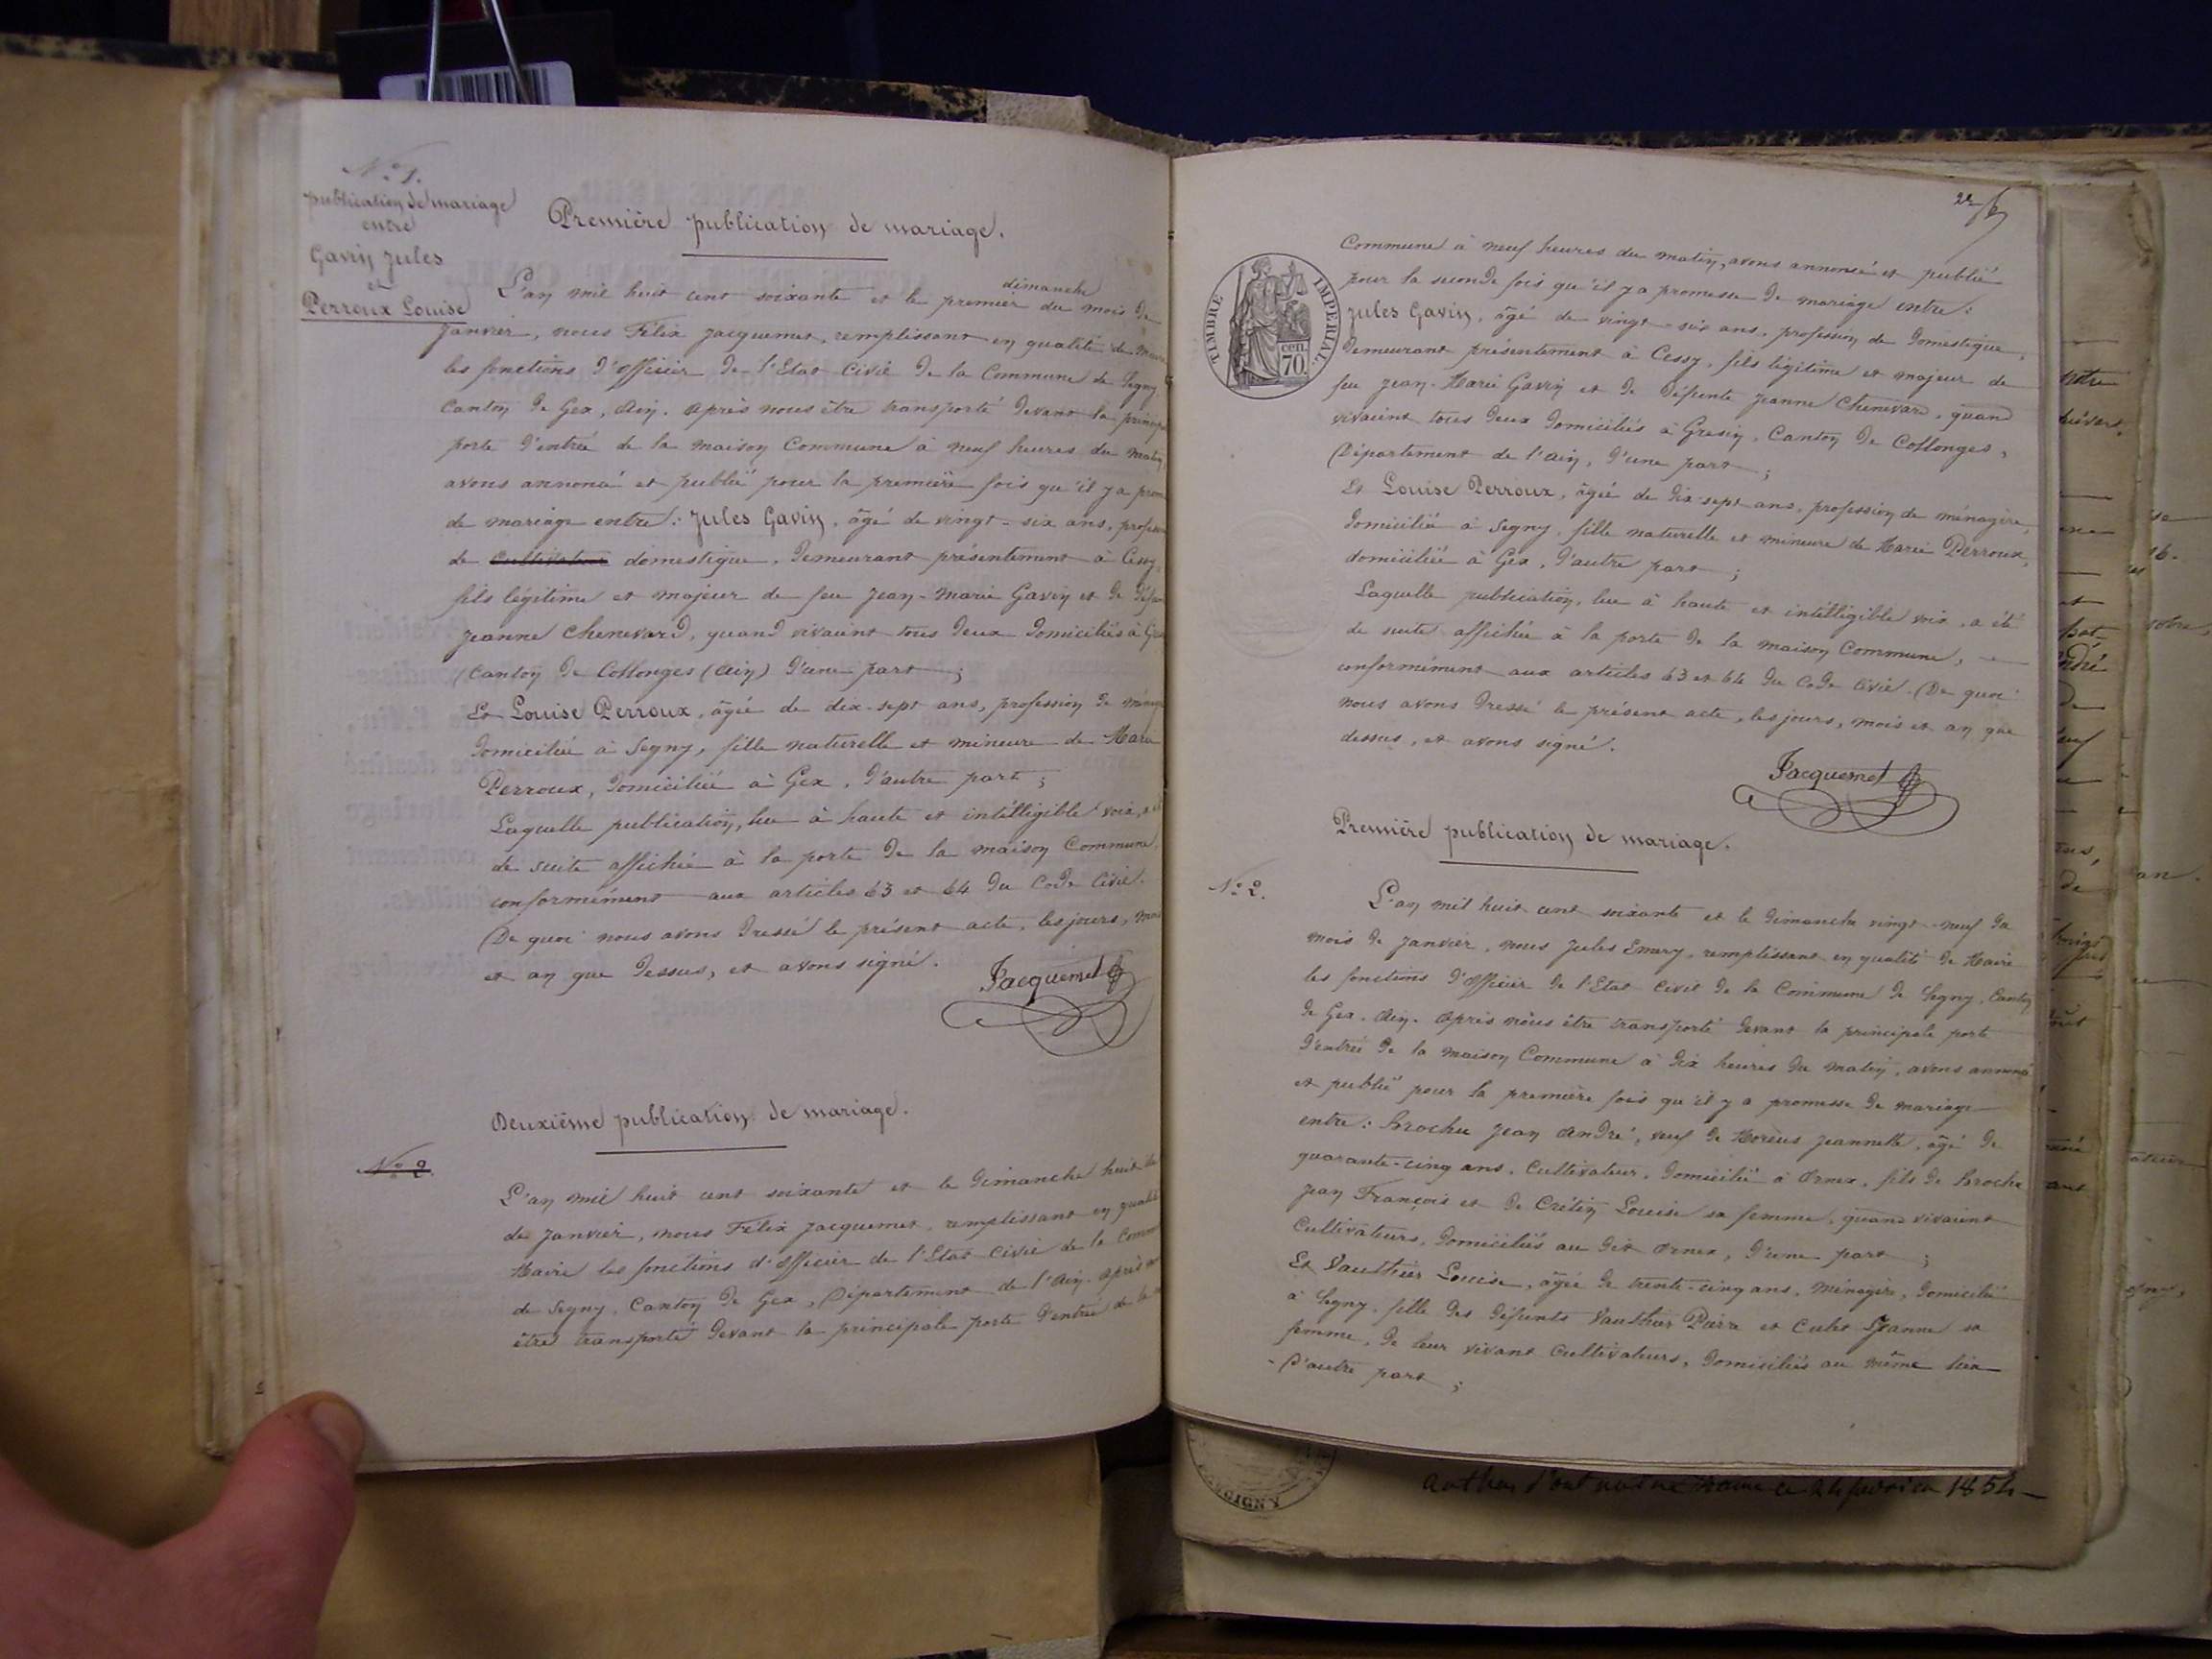 N.° 1.
publication de mariage
entre
Gavin Jules
et
Perroux Louise
Première publication de mariage.
dimanche
L'an mil huit cent soixante et le premier du mois de
Janvier, nous Félix Jacquemet, remplissant en qualité de Maire
les fonctions d'officier de l'Etat Civil de la Commune de Segny
Canton de Gex, Ain. Après nous être transporté devant la
porte d'entrée de la maison Commune à neuf heures du matin,
avons annoncé et publié pour la première fois qu'il y a
de mariage entre: Jules Gavin, âgé de vingt-six ans,
de cultivateur domestique, demeurant présentement à Cessy,
fils légitime et majeur de feu Jean-Marie Gavin et de
Jeanne Chenevard, quand vivaient tous deux domiciliés à
Canton de Collonges (Ain) d'une part;
Et Louise Perroux, âgée de dix-sept ans, profession de
domiciliée à Segny, fille naturelle et mineure de Marie
Perroux, domiciliée à Gex, d'autre part;
Laquelle publication, lue à haute et intelligible voix, a
de suite affichée à la porte de la maison Commune,
conformément aux articles 63 et 64 du Code Civil.
De quoi nous avons dressé le présent acte, les jours,
et an que dessus, et avons signé.
Jacquemet
Deuxième publication de mariage.
N.° 2.
L'an mil huit cent soixante et le dimanche huit
de Janvier, nous Félix Jacquemet, remplissant en
Maire les fonctions d'officier de l'Etat Civil de la
de Segny, Canton de Gex, Département de l'Ain. Après
être transporté devant la principale porte d'entrée de la
22
TIMBRE IMPÉRIAL
cen.
70.
Commune à neuf heures du matin, avons annoncé et publié
pour la seconde fois qu'il y a promesse de mariage entre:
Jules Gavin, âgé de vingt-six ans, profession de domestique,
demeurant présentement à Cessy, fils légitime et majeur de
feu Jean-Marie Gavin et de défunte Jeanne Chenevard, quand
vivaient tous deux domiciliés à Gresin, Canton de Collonges,
Département de l'Ain, d'une part;
Et Louise Perroux, âgée de dix-sept ans, profession de ménagère,
domiciliée à Segny, fille naturelle et mineure de Marie Perroux,
domiciliée à Gex, d'autre part;
Laquelle publication, lue à haute et intelligible voix, a été
de suite affichée à la porte de la maison Commune,
conformément aux articles 63 et 64 du Code Civil. De quoi
nous avons dressé le présent acte, les jours, mois et an que
dessus, et avons signé.
Jacquemet
Première publication de mariage.
N.° 2.
L'an mil huit cent soixante et le dimanche vingt-neuf du
mois de Janvier, nous Jules Emery, remplissant en qualité de Maire
les fonctions d'officier de l'Etat Civil de la Commune de Segny, Canton
de Gex, Ain. Après nous être transporté devant la principale porte
d'entrée de la maison Commune à dix heures du matin, avons annoncé
et publié pour la première fois qu'il y a promesse de mariage
entre: Brochu Jean André, veuf de Jeannette, âgé de
quarante-cinq ans, Cultivateur, domicilié à Ornex, fils de
Jean François et de Crétin Louise sa femme, quand vivaient
Cultivateurs, domiciliés au dit Ornex, d'une part;
Et Vauthier Louise, âgée de trente-cinq ans, ménagère, domiciliée
à Segny, fille des défunts Vauthier Pierre et Culet Jeanne sa
femme, de leur vivant Cultivateurs, domiciliés au même lieu
d'autre part;